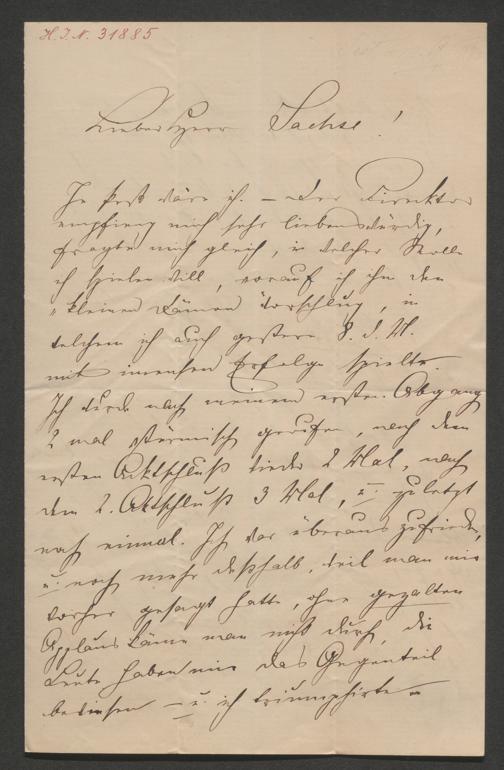 H.I.N. 31885
Lieber Herr Sachse!
In Pest wäre ich. – Der Direktor
empfieng mich sehr liebenswürdig,
fragte mich gleich, in welcher Rolle
ich spielen will, worauf ich ihm den
"kleinen Dämon" vorschlug, in
welchem ich auch gestern 8. d. M.
mit immensen Erfolge spielte.
Ich wurde nach meinem ersten Abgang
2 mal stürmisch gerufen, nach dem
ersten Aktschluß wieder 2 Mal, nach
dem 2. Aktschluß 3 Mal, u. zuletzt
noch einmal. Ich war überaus zufrieden,
u. noch mehr deßhalb, weil man mir
vorher gesagt hatte, ohne gezalten
Applaus käme man nicht durch, die
Leute haben mir das Gegenteil
bewiesen – u. ich triumphirte –